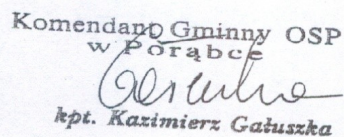 Komendant Gminny OSP
w Porąbce
kpt. Kazimierz Gałuszka